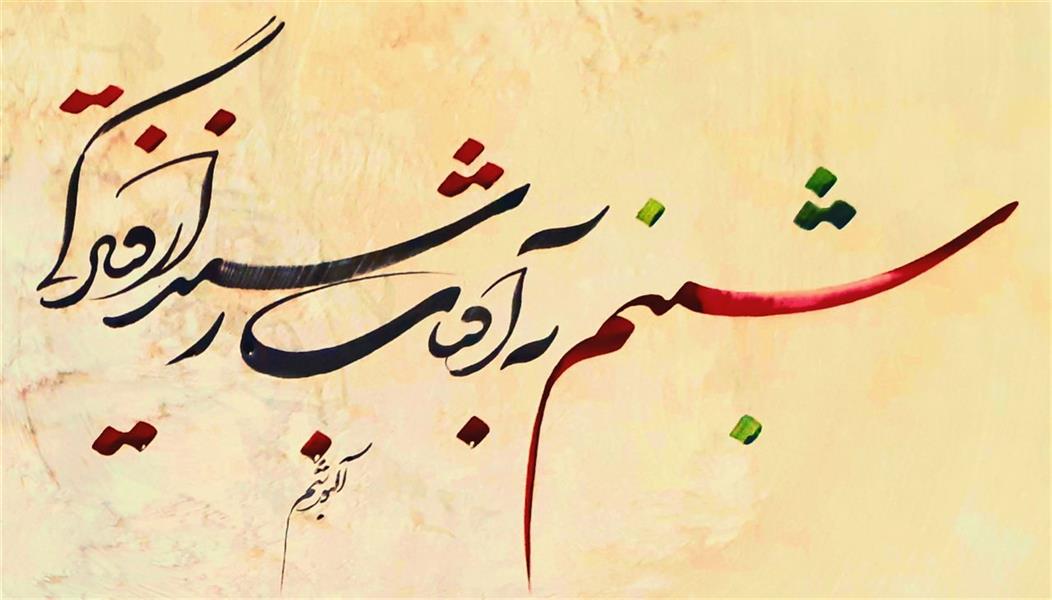 شبنم به آفتاب رسید از فتادگی